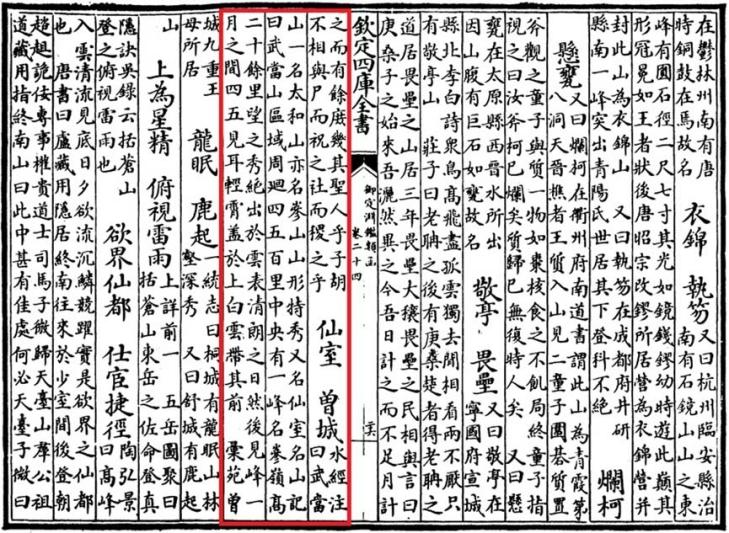 在鬱林州南有唐
時銅鼓在馬故名
衣錦 執笏
又曰杭州臨安縣治
南有石鏡山山之東
峰有圓石徑二尺七寸其光如鏡錢鏐幼時遊此巔其
形冠冕如王者狀後唐昭宗改鏐所居營為衣錦營并
封此山為衣錦山 又曰執笏在成都府井研
縣南一峰突出青陽氏世居其下登科不絶
爛柯
懸甕
又曰爛柯在衢州府山道書謂此山為青霞第
八洞天晉樵者王質入山見二童子圍棊質置
斧觀之童子與質一物如棗核食之不飢局終童子指
視之曰汝斧柯已爛矣質歸已無復時人矣 又曰懸
甕在太原縣西晉水所出
因山腹有巨石如甕故名
敬亭 畏壘
又曰敬亭在
寧國府宣城
縣北李白詩衆鳥髙飛盡孤雲獨去閒相看兩不厭只
有敬亭山 莊子曰老聃之後有庚桑楚者得老聃之
道居畏壘之山居三年畏壘大穰畏壘之民相與言曰
庚桑子之始來吾灑然異之今吾日計之而不足月計
欽定四庫全書
御定淵鑑類函
卷二十四
之而有餘庶幾其聖人乎子胡
不相與尸而祝之社而稷之乎
仙室 曽城
水經注
曰武當
山一名太和山亦名嵾山山形特秀又名仙室名山記
曰武當山區域周迴四五百里中央有一峰名嵾嶺髙
二十餘里望之秀絶出於雲表清朗之日然後見峰一
月之間四五見耳輕霄盖於上白雲帶其前 彚苑曽
城九重王
母所居
龍眠 鹿起
一統志曰桐城有龍眠山林
壑深秀 又曰舒城有鹿起
山
上為星精 俯視雷雨
上詳前一 五岳圖聚曰
括蒼山東岳之佐命登真
隠訣吳錄云括蒼山
登之俯視雷雨也
欲界仙都 仕宦捷徑
陶弘景
曰髙峰
入雲清流見底日夕欲流沉鱗競躍實是欲界之仙都
也 唐書曰盧藏用隠居終南往來於少室間後登朝
趦趄詭佞專事權貴道士司馬子微歸天臺山羣公祖
道藏用指終南山曰此中甚有佳處何必天臺子微曰